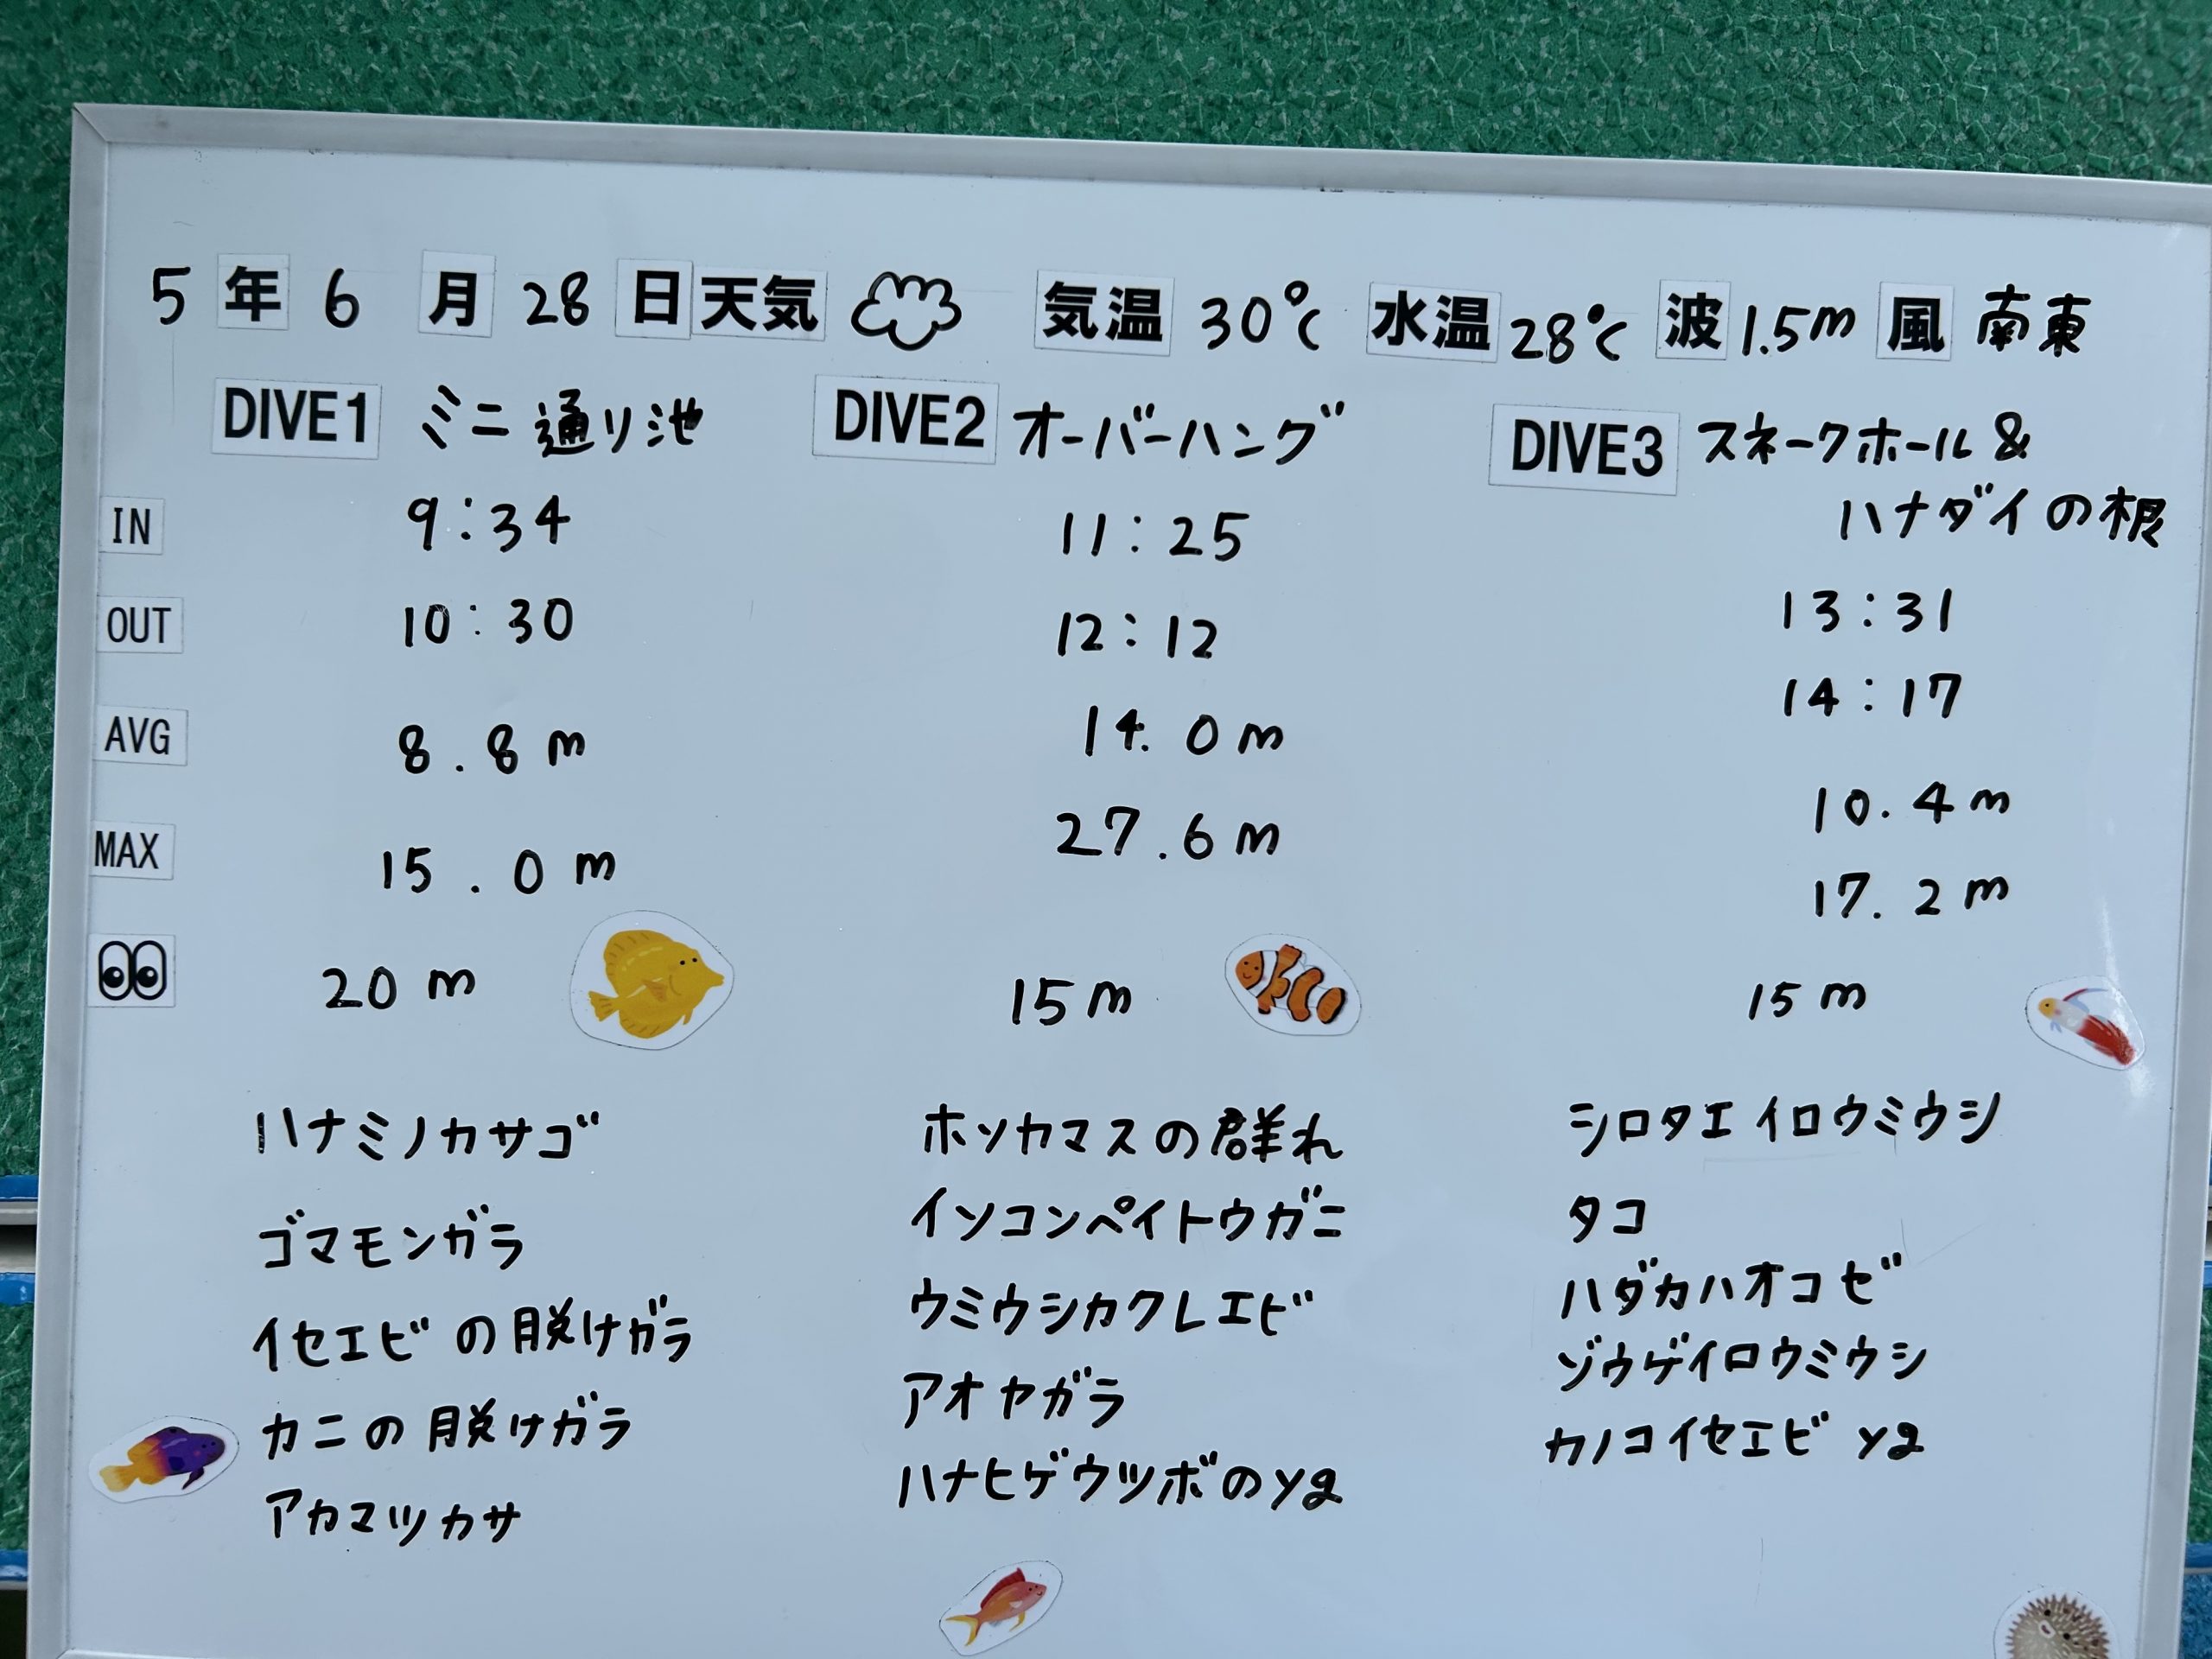 5 年 6 月 28 日 天気 気温 30℃ 水温 28℃ 波 1.5m 風 南東
DIVE1 ミニ通り池 DIVE2 オーバーハング DIVE3 スネークホール&
ハナダイの根
IN 9:34 11:25 13:31
OUT 10:30 12:12 14:17
AVG 8.8m 14.0m 10.4m
MAX 15.0m 27.6m 17.2m
20m 15m 15m
ハナミノカサゴ
ゴマモンガラ
イセエビの脱けガラ
カニの脱けガラ
アカマツカサ
ホソカマスの群れ
イソコンペイトウガニ
ウミウシカクレエビ
アオヤガラ
ハナヒゲウツボのyg
シロタエイロウミウシ
タコ
ハダカハオコゼ
ゾウゲイロウミウシ
カノコイセエビ yg